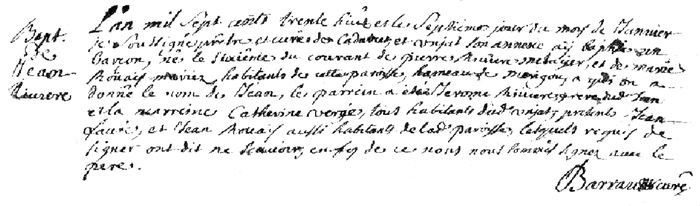 Bapt.
de
Jean
Riviere
L'an mil sept cents trente huit et le septieme jour du mois de Janvier
Je soussigné prêtre et curé des Cadabets et vojat son annexe aij baptisé un
Garcon, né le sixiéme du courant de pierre Riviere menager et de marie
Rouais mariez habitants de cette paroisse, hameau de a qui on a
donné le nom de Jean, le parrein a eté Jerome Riviere frere dud Jean
et la marreine Catherine verges, tous habitants dud vojat, presents Jean
faure, et Jean Rouais aussi habitants de lad. paroisse, lesquels requis de
signer ont dit ne scavoir, en foy de ce nous nous sommes signez avec le
pere.
Barrau curé